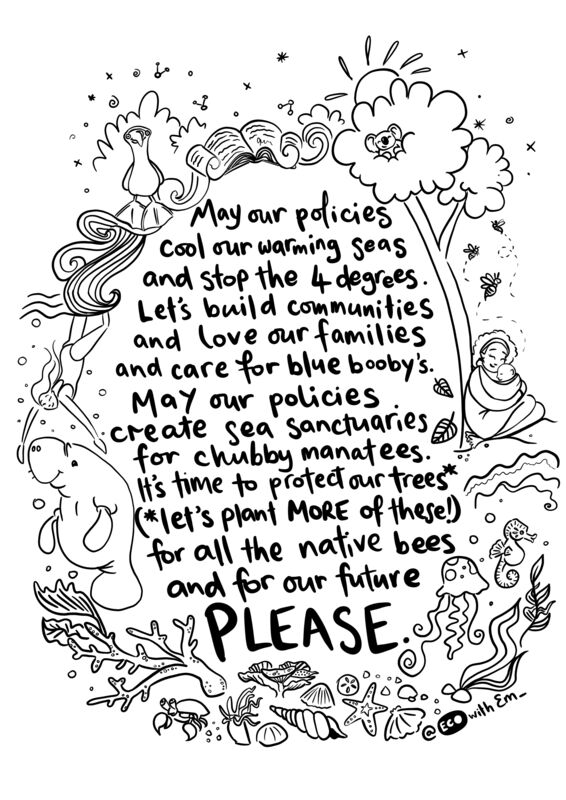 May our policies
cool our warming seas
and stop the 4 degrees.
Let's build communities
and love our families
and care for blue booby's.
May our policies
create sea sanctuaries
for chubby manatees.
It's time to protect our trees*
(*let's plant MORE of these!)
for all the native bees
and for our future
PLEASE.
@ECO with Em_